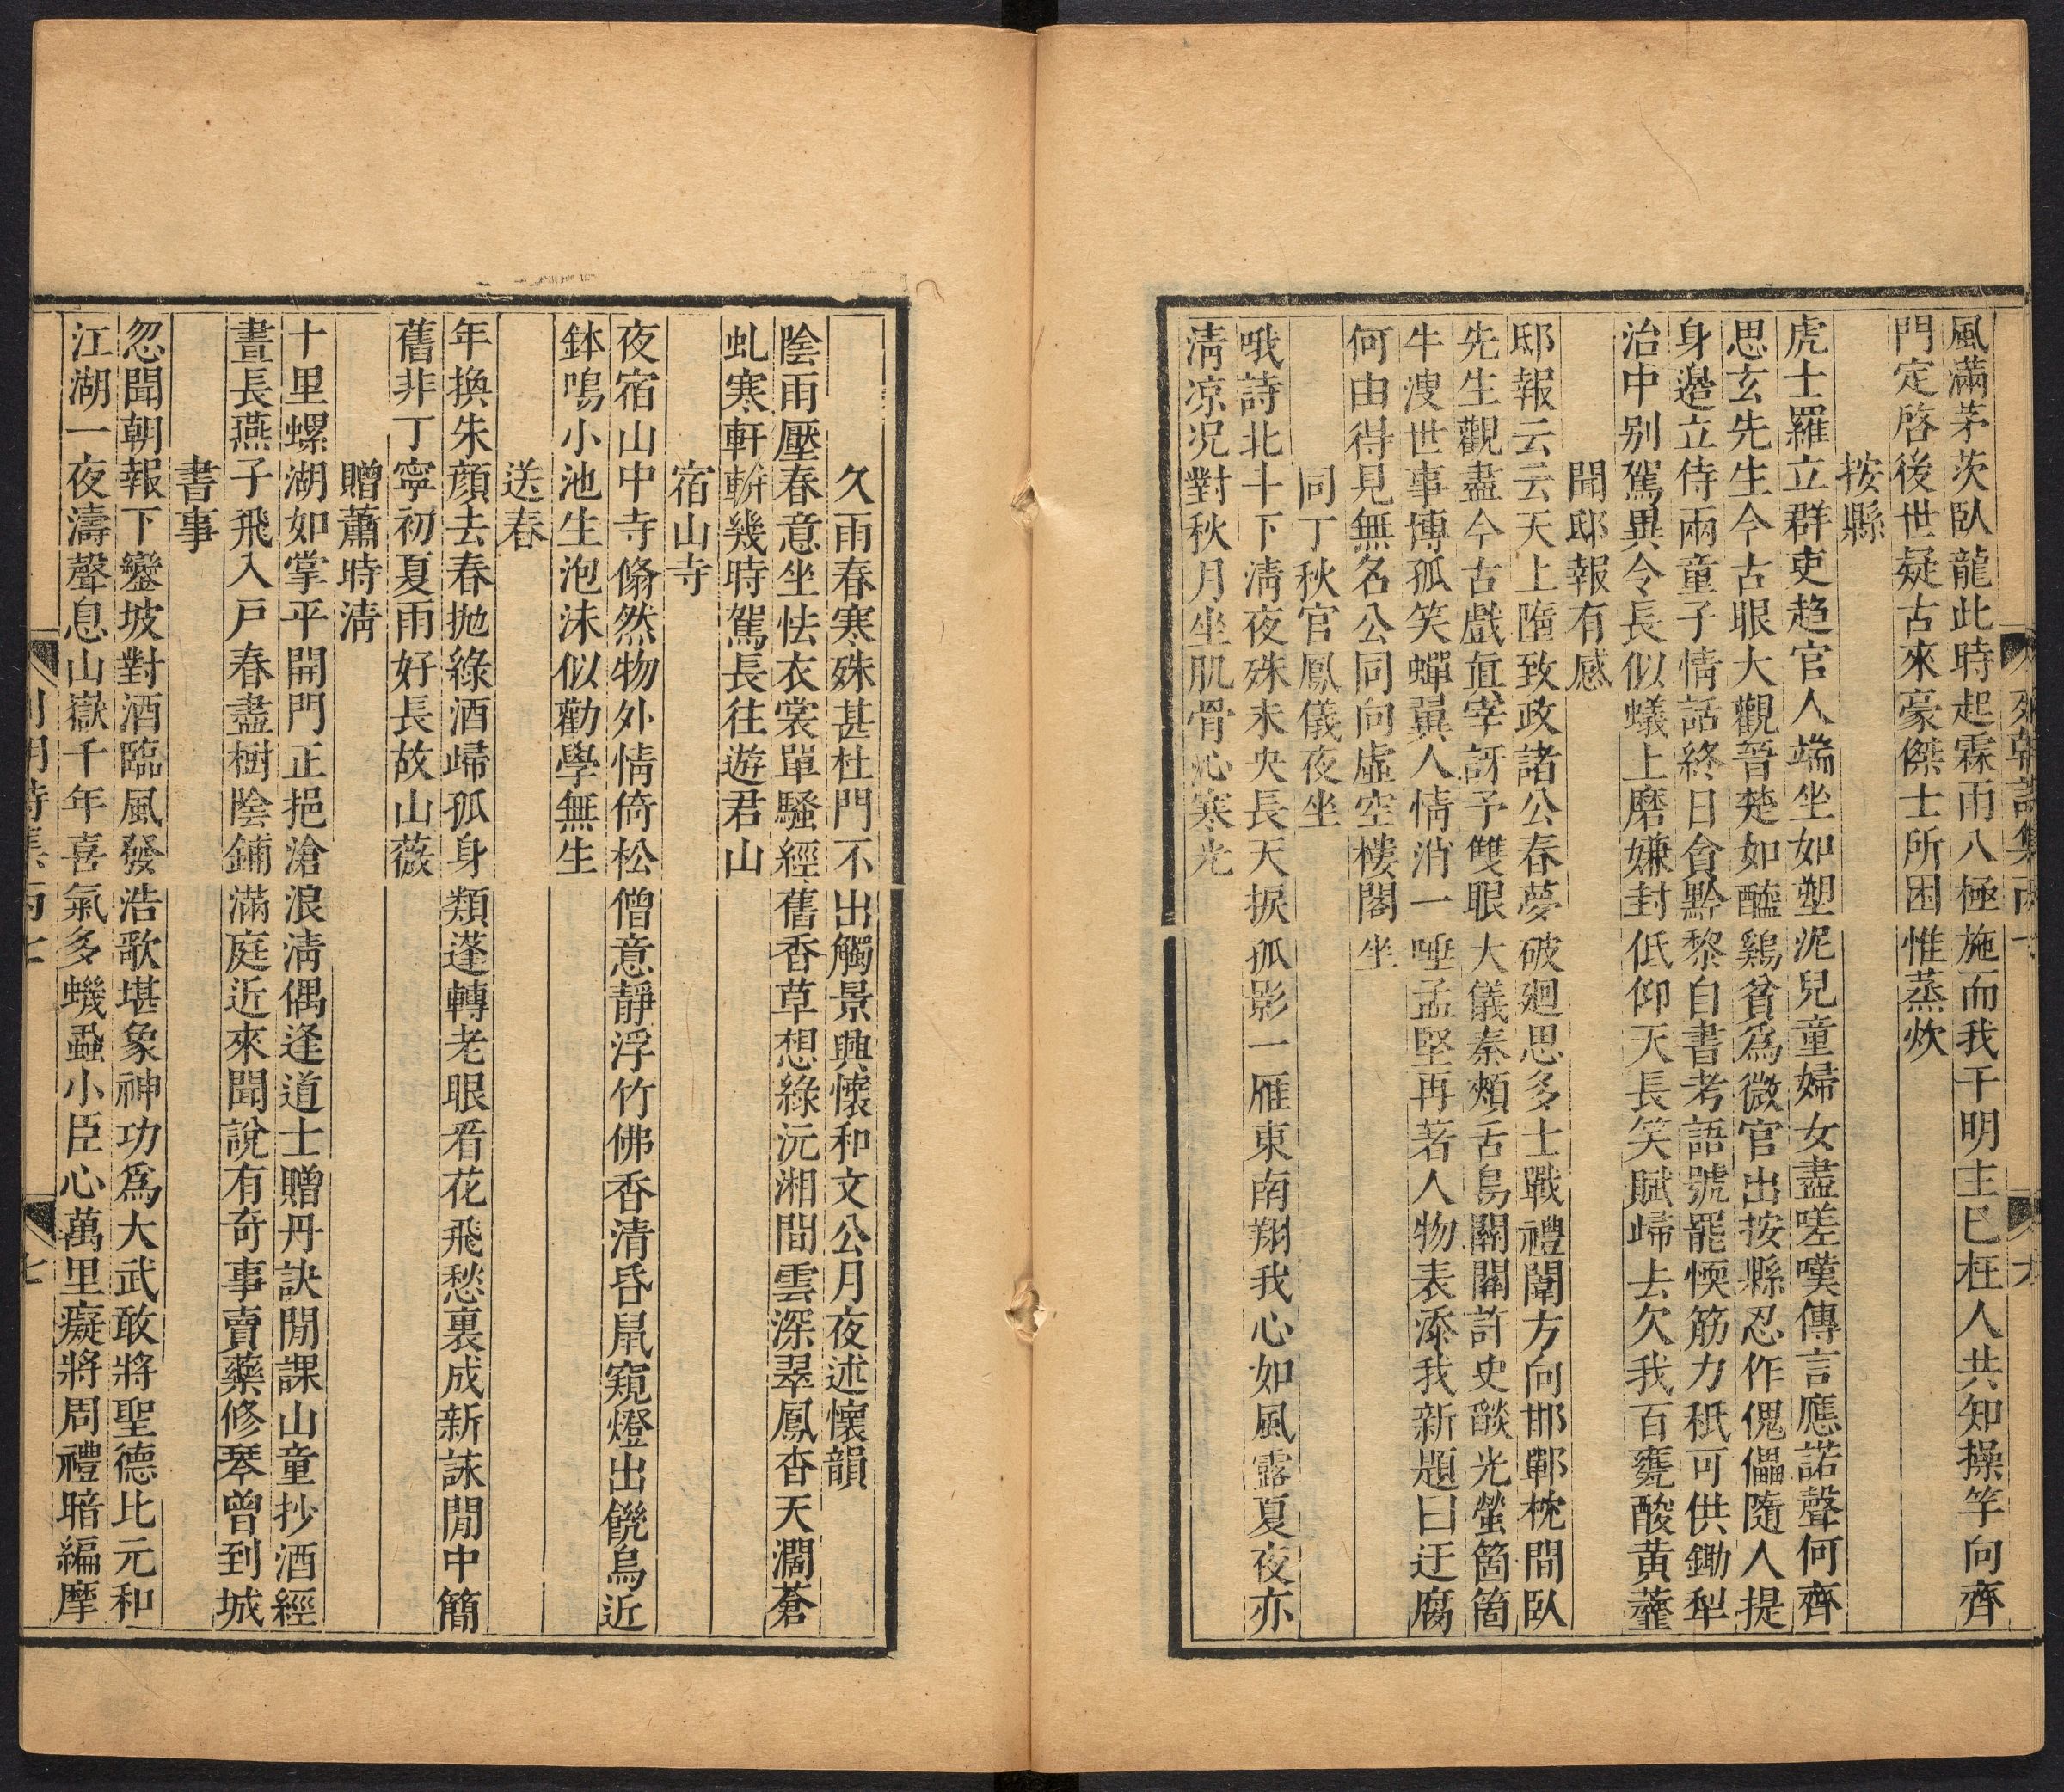 風滿茅茨臥龍此時起霖雨八極施而我干明主已枉人共知操竿向齊
門定啓後世疑古來豪傑士所困惟蒸炊
按縣
虎士羅立群吏趋官人端坐如塑泥兒童婦女盡嗟嘆傳言應諾聲何齊
思玄先生今古眼大觀晉楚如醯鷄貧為微官出按縣忍作傀儡隨人提
身邉立侍兩童子情話終日貪黔黎自書考語號罷愞筋力秖可供鋤犁
治中别駕異令長似蟻上磨嫌封低仰天長笑賦歸去欠我百甕酸黄虀
聞邸報有感
邸報云云天上墮致政諸公春夢破廻思多士戰禮闈方向邯鄲枕間臥
先生觀盡今古戲直宰訝予雙眼大儀秦頰舌島關關許史燄光螢箇箇
牛溲世事博孤笑蟬翼人情消一唾孟堅再著人物表添我新題曰迂腐
何由得見無名公同向虛空樓閣坐
同丁秋官鳳儀夜坐
哦詩北斗下淸夜殊未央長天捩孤影一雁東南翔我心如風露夏夜亦
淸凉况對秋月坐肌骨沁寒光
久雨春寒殊甚杜門不出觸景興懷和文公月夜述懷韻
陰雨壓春意坐怯衣裳單騷經舊香草想綠沅湘間雲深翠鳳杳天濶蒼
虬寒軒軿幾時駕長往遊君山
宿山寺
夜宿山中寺翛然物外情倚松僧意靜浮竹佛香清昏鼠窺燈出饑烏近
鉢鳴小池生泡沫似勸學無生
送春
年換朱顏去春拋綠酒歸孤身類蓬轉老眼看花飛愁裏成新詠閒中簡
舊非丁寧初夏雨好長故山薇
贈蕭時淸
十里螺湖如掌平開門正挹滄浪淸偶逢道士贈丹訣閒課山童抄酒經
晝長燕子飛入戶春盡樹陰鋪滿庭近來聞說有奇事賣藥修琴曾到城
書事
忽聞朝報下鑾坡對酒臨風發浩歌堪象神功為大武敢將聖德比元和
江湖一夜濤聲息山嶽千年喜氣多蟣蝨小臣心萬里癡將周禮暗編摩
七